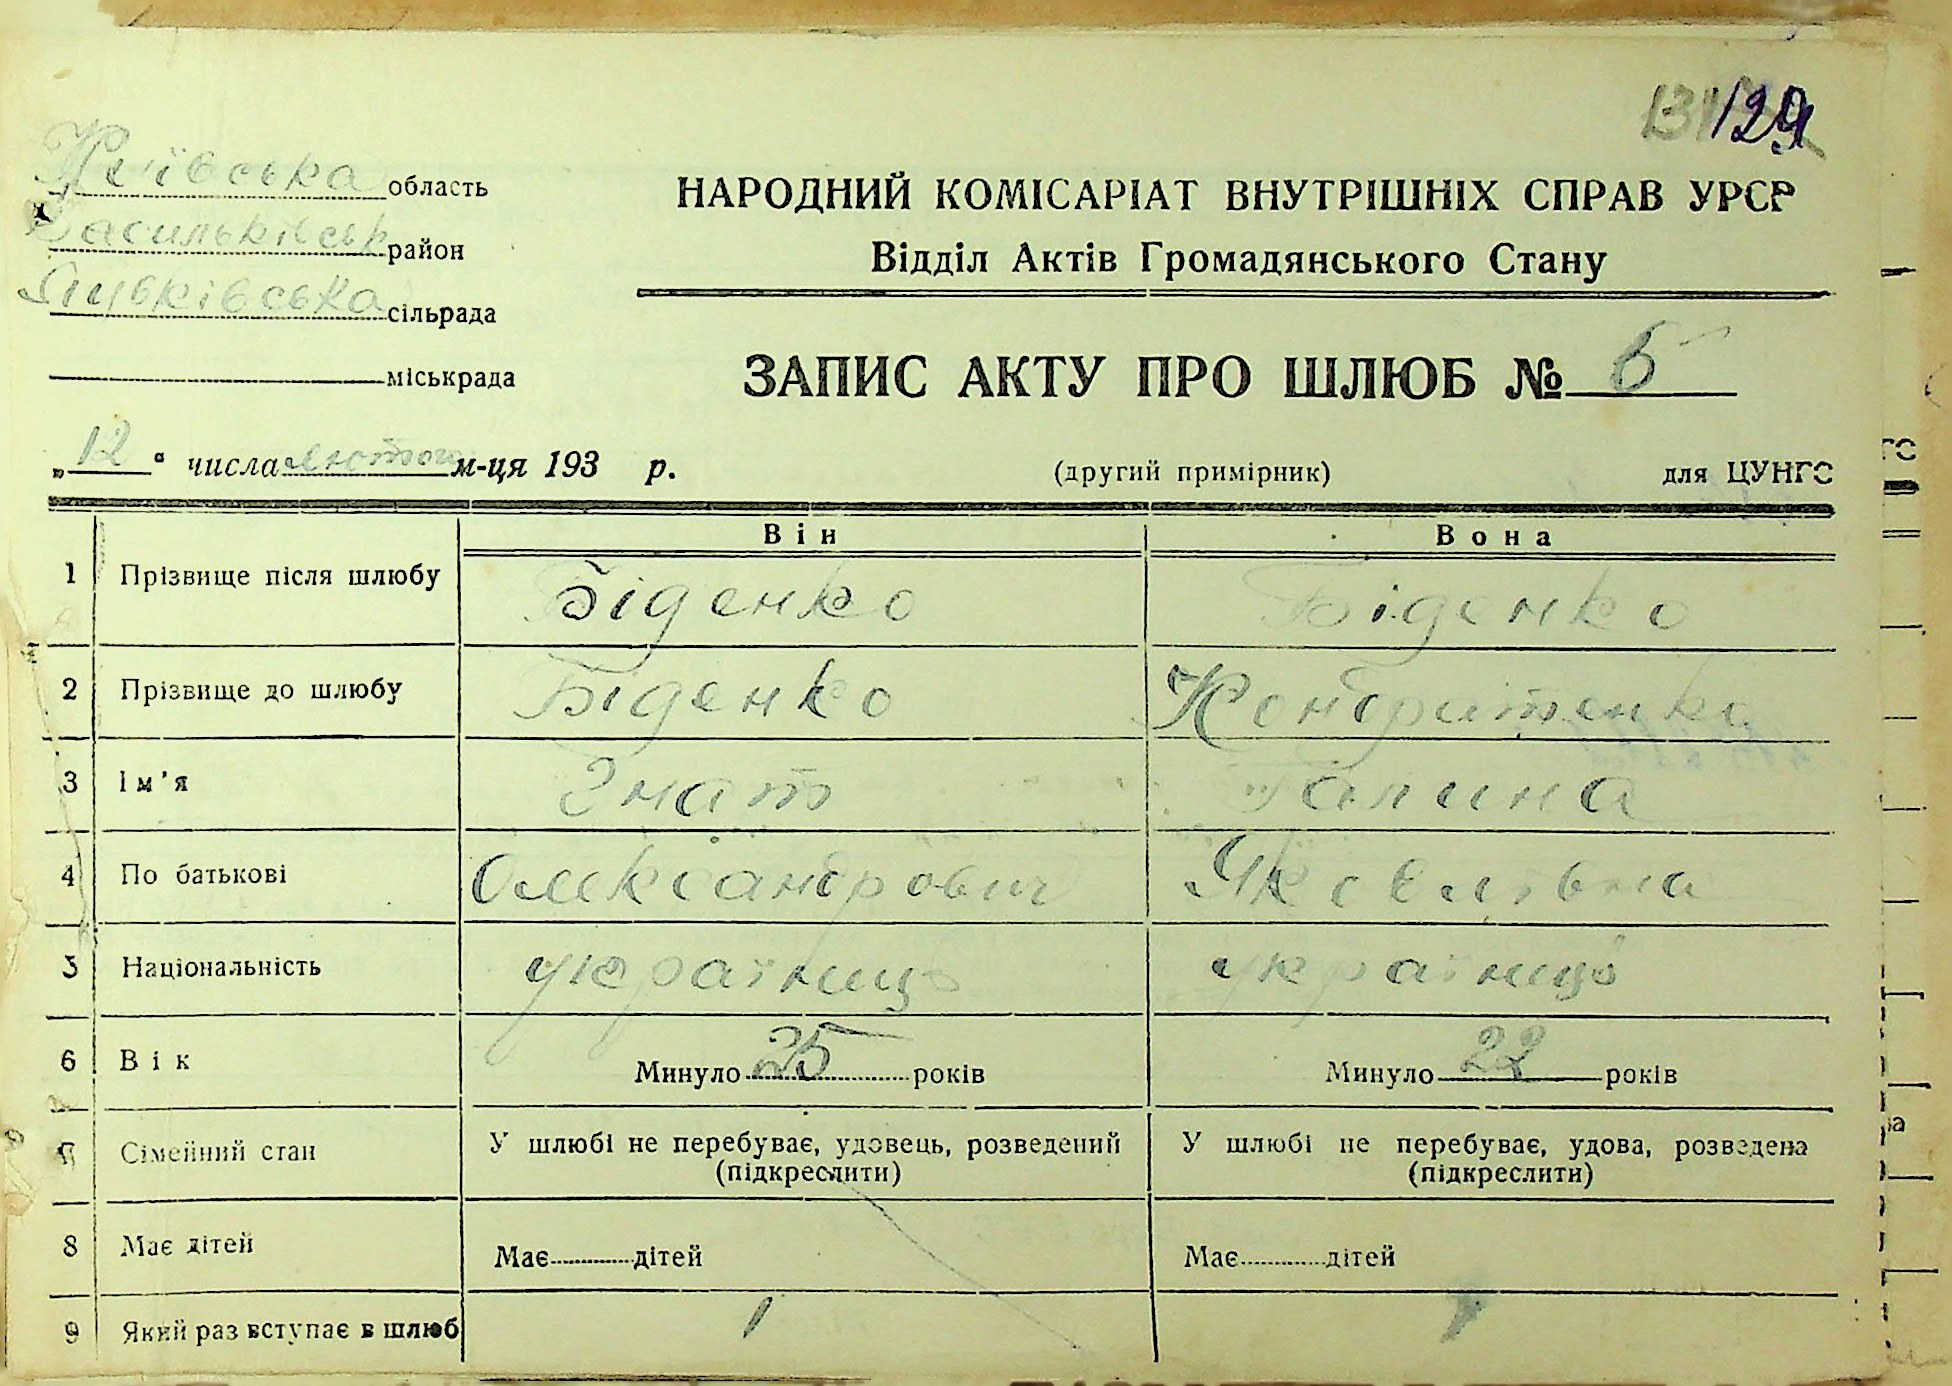 129
Київська область
Васильківськ район
Яцьківська сільрада
міськрада
НАРОДНИЙ КОМІСАРІАТ ВНУТРІШНІХ СПРАВ УРСР
Відділ Актів Громадянського Стану
ЗАПИС АКТУ ПРО ШЛЮБ № 6
„12“ числа лютого м-ця 193 р.
(другий примірник)
для ЦУНГО
Він
Вона
1 Прізвище після шлюбу Біденко Біденко
2 Прізвище до шлюбу Біденко Кондратенко
3 Ім'я Гнат Галина
4 По батькові Олександрович Яковлівна
5 Національність українць українць
6 Вік Минуло 25 років Минуло 22 років
7 Сімейний стан У шлюбі не перебуває, удовець, розведений (підкреслити) У шлюбі не перебуває, удова, розведена (підкреслити)
8 Має дітей Має дітей Має дітей
9 Який раз вступає в шлюб 1 1